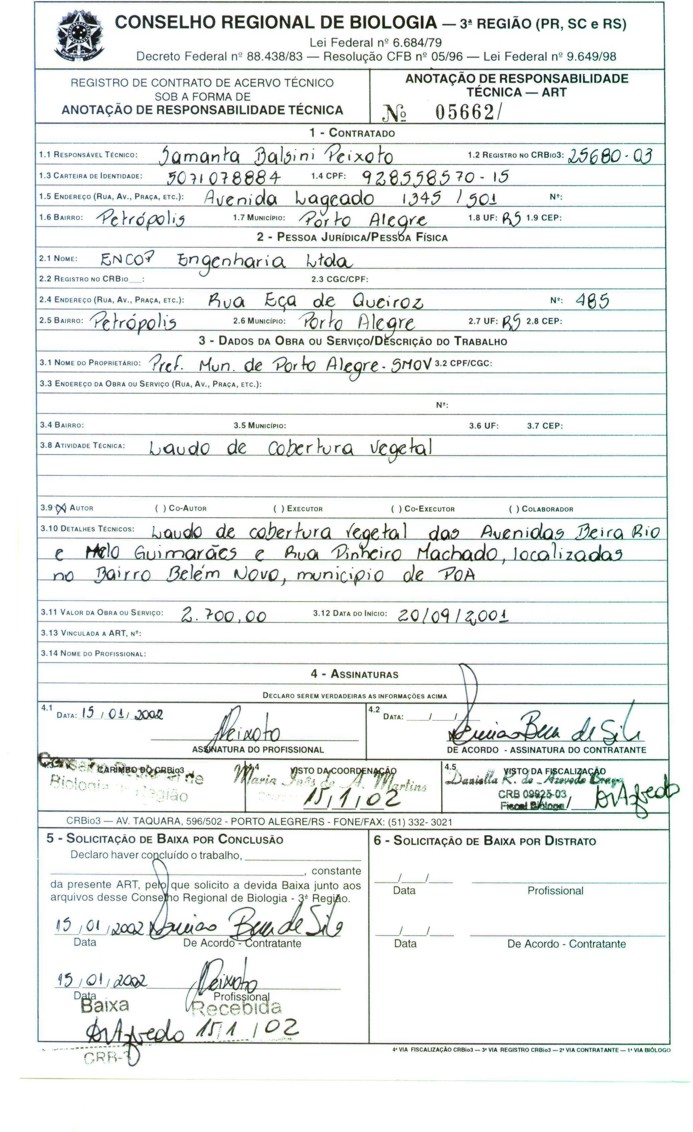 CONSELHO REGIONAL DE BIOLOGIA — 3ª REGIÃO (PR, SC e RS)
Lei Federal nº 6.684/79
Decreto Federal nº 88.438/83 — Resolução CFB nº 05/96 — Lei Federal nº 9.649/98
REGISTRO DE CONTRATO DE ACERVO TÉCNICO
SOB A FORMA DE
ANOTAÇÃO DE RESPONSABILIDADE TÉCNICA
ANOTAÇÃO DE RESPONSABILIDADE
TÉCNICA — ART
Nº 05662/
1 - CONTRATADO
1.1 RESPONSÁVEL TÉCNICO: Samanta Balsini Peixoto 1.2 REGISTRO NO CRBio3: 25680-03
1.3 CARTEIRA DE IDENTIDADE: 5071078884 1.4 CPF: 928558570-15
1.5 ENDEREÇO (RUA, AV., PRAÇA, ETC.): Avenida Lageado 1345 / 501 Nº:
1.6 BAIRRO: Petrópolis 1.7 MUNICÍPIO: Porto Alegre 1.8 UF: RS 1.9 CEP:
2 - PESSOA JURÍDICA/PESSOA FÍSICA
2.1 NOME: ENCOP Engenharia Ltda
2.2 REGISTRO NO CRBIO__: 2.3 CGC/CPF:
2.4 ENDEREÇO (RUA, AV., PRAÇA, ETC.): Rua Eça de Queiroz Nº: 485
2.5 BAIRRO: Petrópolis 2.6 MUNICÍPIO: Porto Alegre 2.7 UF: RS 2.8 CEP:
3 - DADOS DA OBRA OU SERVIÇO/DESCRIÇÃO DO TRABALHO
3.1 NOME DO PROPRIETÁRIO: Pref. Mun. de Porto Alegre - SMOV 3.2 CPF/CGC:
3.3 ENDEREÇO DA OBRA OU SERVIÇO (RUA, AV., PRAÇA, ETC.):
Nº:
3.4 BAIRRO: 3.5 MUNICÍPIO: 3.6 UF: 3.7 CEP:
3.8 ATIVIDADE TÉCNICA: Laudo de cobertura vegetal
3.9 (X) AUTOR ( ) CO-AUTOR ( ) EXECUTOR ( ) CO-EXECUTOR ( ) COLABORADOR
3.10 DETALHES TÉCNICOS: Laudo de cobertura vegetal das Avenidas Beira Rio
e Melo Guimarães e Rua Pinheiro Machado, localizadas
no Bairro Belém Novo, município de POA
3.11 VALOR DA OBRA OU SERVIÇO: 2.700,00 3.12 DATA DO INÍCIO: 20/09/2001
3.13 VINCULADA A ART, Nº:
3.14 NOME DO PROFISSIONAL:
4 - ASSINATURAS
DECLARO SEREM VERDADEIRAS AS INFORMAÇÕES ACIMA
4.1 DATA: 15/01/2002 Peixoto
ASSINATURA DO PROFISSIONAL
4.2 DATA: __/__/__
DE ACORDO - ASSINATURA DO CONTRATANTE
CARIMBO DO CRBio3
Biologia Região
VISTO DA COORDENAÇÃO
Maria Inês de A. Martins
15/1/02
4.5 VISTO DA FISCALIZAÇÃO
Daniella R. de Azevedo
CRB 09925-03
CRBio3 — AV. TAQUARA, 596/502 - PORTO ALEGRE/RS - FONE/FAX: (51) 332- 3021
5 - SOLICITAÇÃO DE BAIXA POR CONCLUSÃO
Declaro haver concluído o trabalho,
, constante
da presente ART, pelo que solicito a devida Baixa junto aos
arquivos desse Conselho Regional de Biologia - 3ª Região.
15/01/2002
Data De Acordo - Contratante
15/01/2002 Peixoto
Data Profissional
Baixa Recebida
15/1/02
CRB-3
6 - SOLICITAÇÃO DE BAIXA POR DISTRATO
__/__/__
Data Profissional
__/__/__
Data De Acordo - Contratante
4ª VIA FISCALIZAÇÃO CRBio3 — 3ª VIA REGISTRO CRBio3 — 2ª VIA CONTRATANTE — 1ª VIA BIÓLOGO